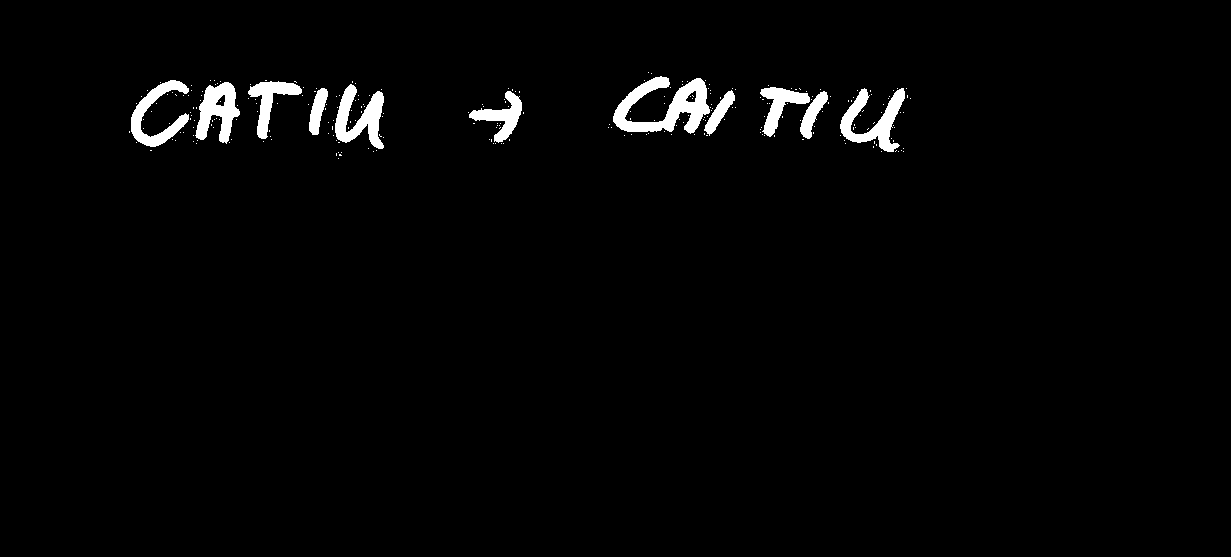 CATIU → CAITIU